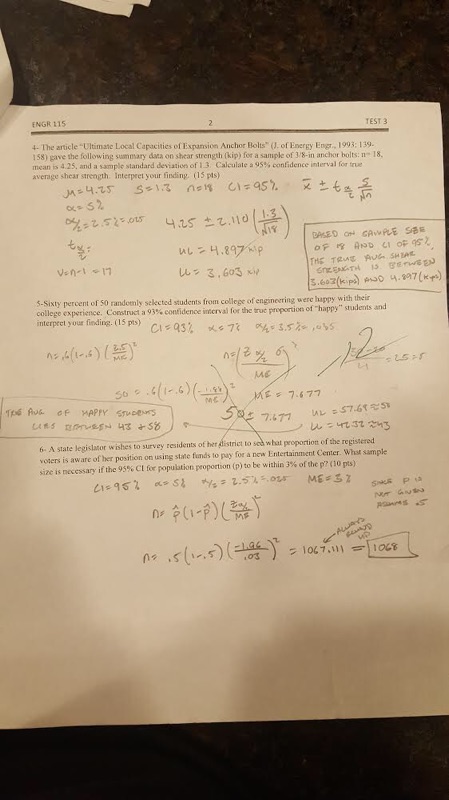 ENGR 115 2 TEST 3
4- The article "Ultimate Local Capacities of Expansion Anchor Bolts" (J. of Energy Engr., 1993; 139-
158) gave the following summary data on shear strength (kip) for a sample of 3/8-in anchor bolts: n= 18,
mean is 4.25, and a sample standard deviation of 1.3. Calculate a 95% confidence interval for true
average shear strength. Interpret your finding. (15 pts)
M=4.25 S=1.3 n=18 CI=95% x̄ ± t α/2 S/√n
α=5%
α/2=2.5%=.025 4.25 ± 2.110 (1.3/√18)
t α/2:
V=n-1=17
UL = 4.897 kip
LL = 3.603 kip
BASED ON SAMPLE SIZE
OF 18 AND CI OF 95%,
THE TRUE AVG SHEAR
STRENGTH IS BETWEEN
3.603(kips) AND 4.897(kips)
5-Sixty percent of 50 randomly selected students from college of engineering were happy with their
college experience. Construct a 93% confidence interval for the true proportion of "happy" students and
interpret your finding. (15 pts)
CI=93% α=7% α/2=3.5%=.035
n=.6(1-.6)( /ME)²
n=(Z α/2 σ/ME)²
12
50 = .6(1-.6)( /ME)² ME = 7.677
50 ± 7.677
UL = 57.68 ≈ 58
LL = 42.32 ≈ 43
THE AVG OF HAPPY STUDENTS
LIES BETWEEN 43 + 58
6- A state legislator wishes to survey residents of her district to see what proportion of the registered
voters is aware of her position on using state funds to pay for a new Entertainment Center. What sample
size is necessary if the 95% CI for population proportion (p) to be within 3% of the p? (10 pts)
CI=95% α=5% α/2=2.5%=.025 ME=3%
SINCE P IS
NOT GIVEN
ASSUME .5
n= p̂(1-p̂)(Zα/2/ME)²
ALWAYS
ROUND
UP
n= .5(1-.5)(-1.96/.03)² = 1067.111 = 1068